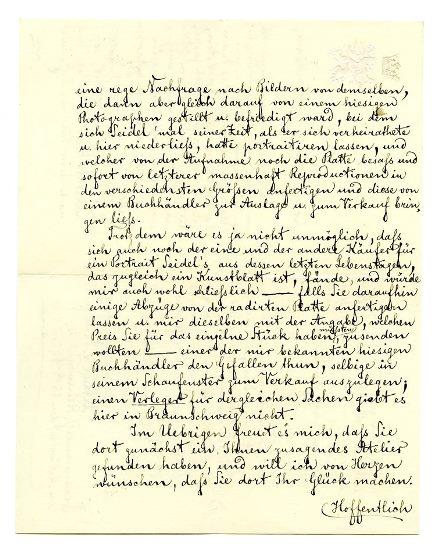 eine rege Nachfrage nach Bildern von demselben,
die dann aber gleich darauf von einem hiesigen
Photographen gestillt u. befriedigt ward, bei dem
sich Seidel 'mal seiner Zeit, als er sich verheirathete
u. hier niederließ, hatte portraitiren lassen, und
welcher von der Aufnahme noch die Platte besass und
sofort von letzterer massenhaft Reproductionen in
den verschiedensten Grössen anfertigen und diese von
einem Buchhändler zur Auslage u. zum Verkauf brin-
gen liess.
Trotzdem wäre es ja nicht unmöglich, daß
sich auch noch der eine und der andere Käufer für
ein Portrait Seidel's aus dessen letzten Lebenstagen,
das zugleich ein Kunstblatt ist, fände, und würde
mir auch wohl schliesslich — falls Sie daraufhin
einige Abzüge von der radirten Platte anfertigen
lassen u. mir dieselben mit der Angabe, welchen
Preis Sie für das einzelne Stück haben müssten, zusenden
wollten — einer der mir bekannten hiesigen
Buchhändler den Gefallen thun, selbige in
seinem Schaufenster zum Verkauf auszulegen;
einen Verleger für dergleichen Sachen giebt es
hier in Braunschweig nicht.
Im Uebrigen freut es mich, daß Sie
dort zunächst ein Ihnen zusagendes Atelier
gefunden haben, und will ich von Herzen
wünschen, daß Sie dort Ihr Glück machen.
Hoffentlich